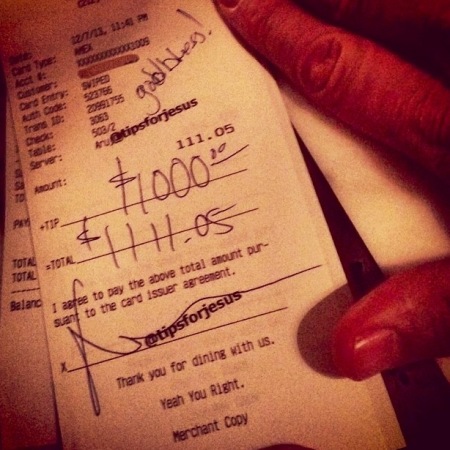 12/7/13, 11:41 PM
Card Type: AMEX
Acct #: XXXXXXXXXXX1009
Customer:
Card Entry: SWIPED
Auth Code: 523766
Trans ID: 20991755
Check: 3063
Table: 503/2
Server: Aru
godbless!
@tipsforjesus
Amount: 111.05
+TIP $1000.00
=TOTAL $1111.05
I agree to pay the above total amount pur-
suant to the card issuer agreement.
X
@tipsforjesus
Thank you for dining with us.
Yeah You Right.
Merchant Copy
PAY
TOTAL
TOTAL
Balanc